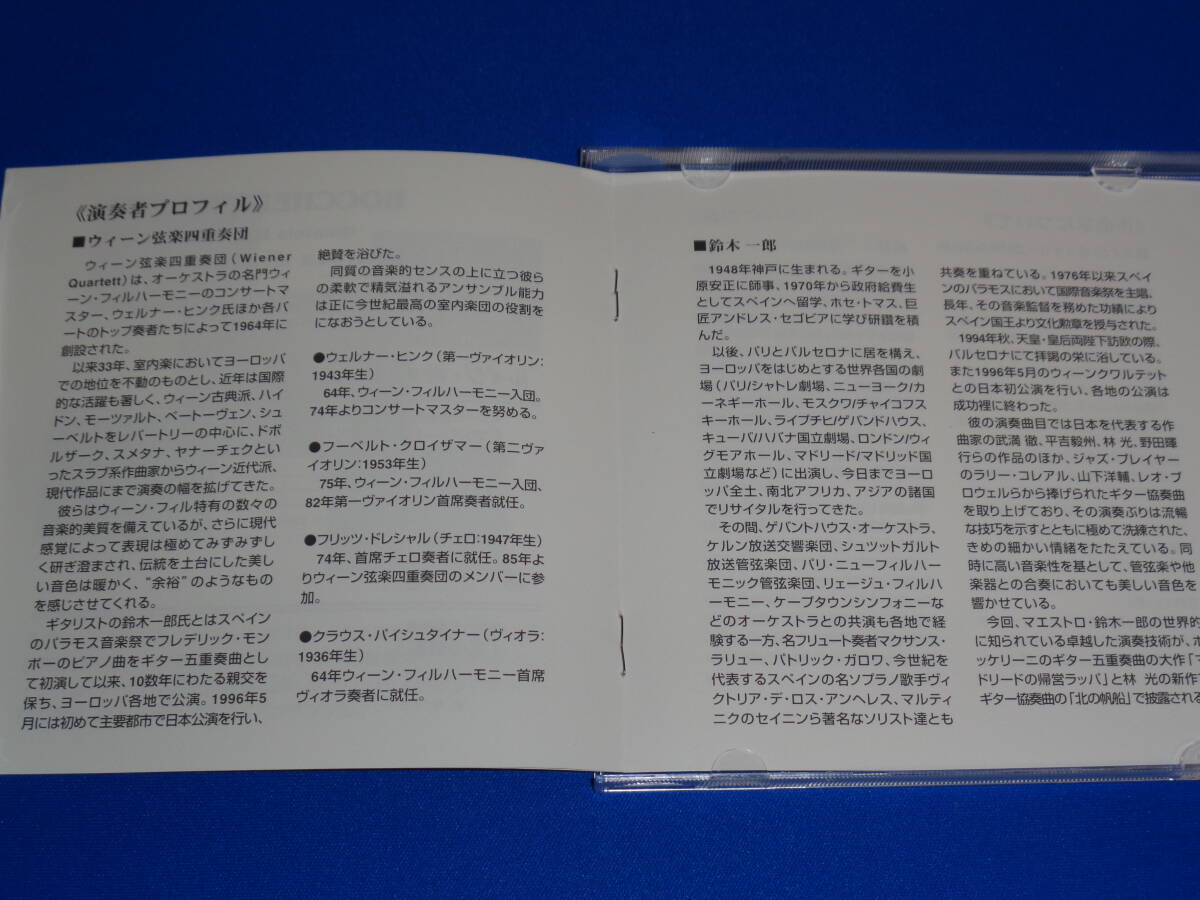 《演奏者プロフィル》
■ウィーン弦楽四重奏団
ウィーン弦楽四重奏団（Wiener
Quartett）は、オーケストラの名門ウィ
ーン・フィルハーモニーのコンサートマ
スター、ウェルナー・ヒンク氏ほか各パ
ートのトップ奏者たちによって1964年に
創設された。
以来33年、室内楽においてヨーロッパ
での地位を不動のものとし、近年は国際
的な活躍も著しく、ウィーン古典派、ハイ
ドン、モーツァルト、ベートーヴェン、シュ
ーベルトをレパートリーの中心に、ドボ
ルザーク、スメタナ、ヤナーチェクとい
ったスラブ系作曲家からウィーン近代派、
現代作品にまで演奏の幅を拡げてきた。
彼らはウィーン・フィル特有の数々の
音楽的美質を備えているが、さらに現代
感覚によって表現は極めてみずみずし
く研ぎ澄まされ、伝統を土台にした美し
い音色は暖かく、“余裕”のようなもの
を感じさせてくれる。
ギタリストの鈴木一郎氏とはスペイン
のパラモス音楽祭でフレデリック・モン
ポーのピアノ曲をギター五重奏曲とし
て初演して以来、10数年にわたる親交を
保ち、ヨーロッパ各地で公演。1996年5
月には初めて主要都市で日本公演を行い、
絶賛を浴びた。
同質の音楽的センスの上に立つ彼ら
の柔軟で精気溢れるアンサンブル能力
は正に今世紀最高の室内楽団の役割を
になおうとしている。
●ウェルナー・ヒンク（第一ヴァイオリン:
1943年生）
64年、ウィーン・フィルハーモニー入団。
74年よりコンサートマスターを努める。
●フーベルト・クロイザマー（第二ヴァ
イオリン:1953年生）
75年、ウィーン・フィルハーモニー入団、
82年第一ヴァイオリン首席奏者就任。
●フリッツ・ドレシャル（チェロ:1947年生）
74年、首席チェロ奏者に就任。85年よ
りウィーン弦楽四重奏団のメンバーに参
加。
●クラウス・パイシュタイナー（ヴィオラ:
1936年生）
64年ウィーン・フィルハーモニー首席
ヴィオラ奏者に就任。
■鈴木一郎
1948年神戸に生まれる。ギターを小
原安正に師事、1970年から政府給費生
としてスペインへ留学、ホセ・トマス、巨
匠アンドレス・セゴビアに学び研鑽を積
んだ。
以後、パリとバルセロナに居を構え、
ヨーロッパをはじめとする世界各国の劇
場（パリ/シャトレ劇場、ニューヨーク/カ
ーネギーホール、モスクワ/チャイコフス
キーホール、ライプチヒ/ゲバンドハウス、
キューバ/ハバナ国立劇場、ロンドン/ウィ
グモアホール、マドリード/マドリッド国
立劇場など）に出演し、今日までヨーロ
ッパ全土、南北アフリカ、アジアの諸国
でリサイタルを行ってきた。
その間、ゲバントハウス・オーケストラ、
ケルン放送交響楽団、シュツットガルト
放送管弦楽団、パリ・ニューフィルハー
モニック管弦楽団、リェージュ・フィルハ
ーモニー、ケープタウンシンフォニーな
どのオーケストラとの共演も各地で経
験する一方、名フリュート奏者マクサンス・
ラリュー、パトリック・ガロワ、今世紀を
代表するスペインの名ソプラノ歌手ヴィ
クトリア・デ・ロス・アンヘレス、マルティ
ニクのセイニンら著名なソリスト達とも
共奏を重ねている。1976年以来スペイ
ンのパラモスにおいて国際音楽祭を主唱、
長年、その音楽監督を務めた功績により
スペイン国王より文化勲章を授与された。
1994年秋、天皇・皇后両陛下訪欧の際、
バルセロナにて拝謁の栄に浴している。
また1996年5月のウィーンクワルテット
との日本初公演を行い、各地の公演は
成功裡に終わった。
彼の演奏曲目では日本を代表する作
曲家の武満 徹、平吉毅州、林 光、野田暉
行らの作品のほか、ジャズ・プレイヤー
のラリー・コレアル、山下洋輔、レオ・ブ
ロウェルらから捧げられたギター協奏曲
を取り上げており、その演奏ぶりは流暢
な技巧を示すとともに極めて洗練された、
きめの細かい情緒をたたえている。同
時に高い音楽性を基として、管弦楽や他
楽器との合奏においても美しい音色を
響かせている。
今回、マエストロ・鈴木一郎の世界的
に知られている卓越した演奏技術が、ボ
ッケリーニのギター五重奏曲の大作「マ
ドリードの帰営ラッパ」と林 光の新作
ギター協奏曲の「北の帆船」で披露される